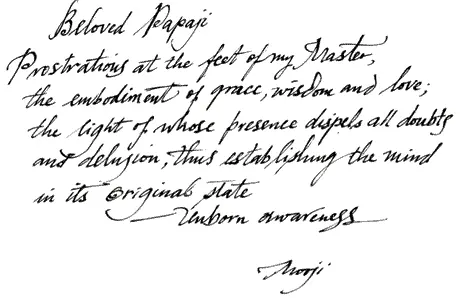 Beloved Papaji
Prostrations at the feet of my Master,
the embodiment of grace, wisdom and love;
the light of whose presence dispels all doubts
and delusion, thus establishing the mind
in its original state
— Unborn awareness
Mooji